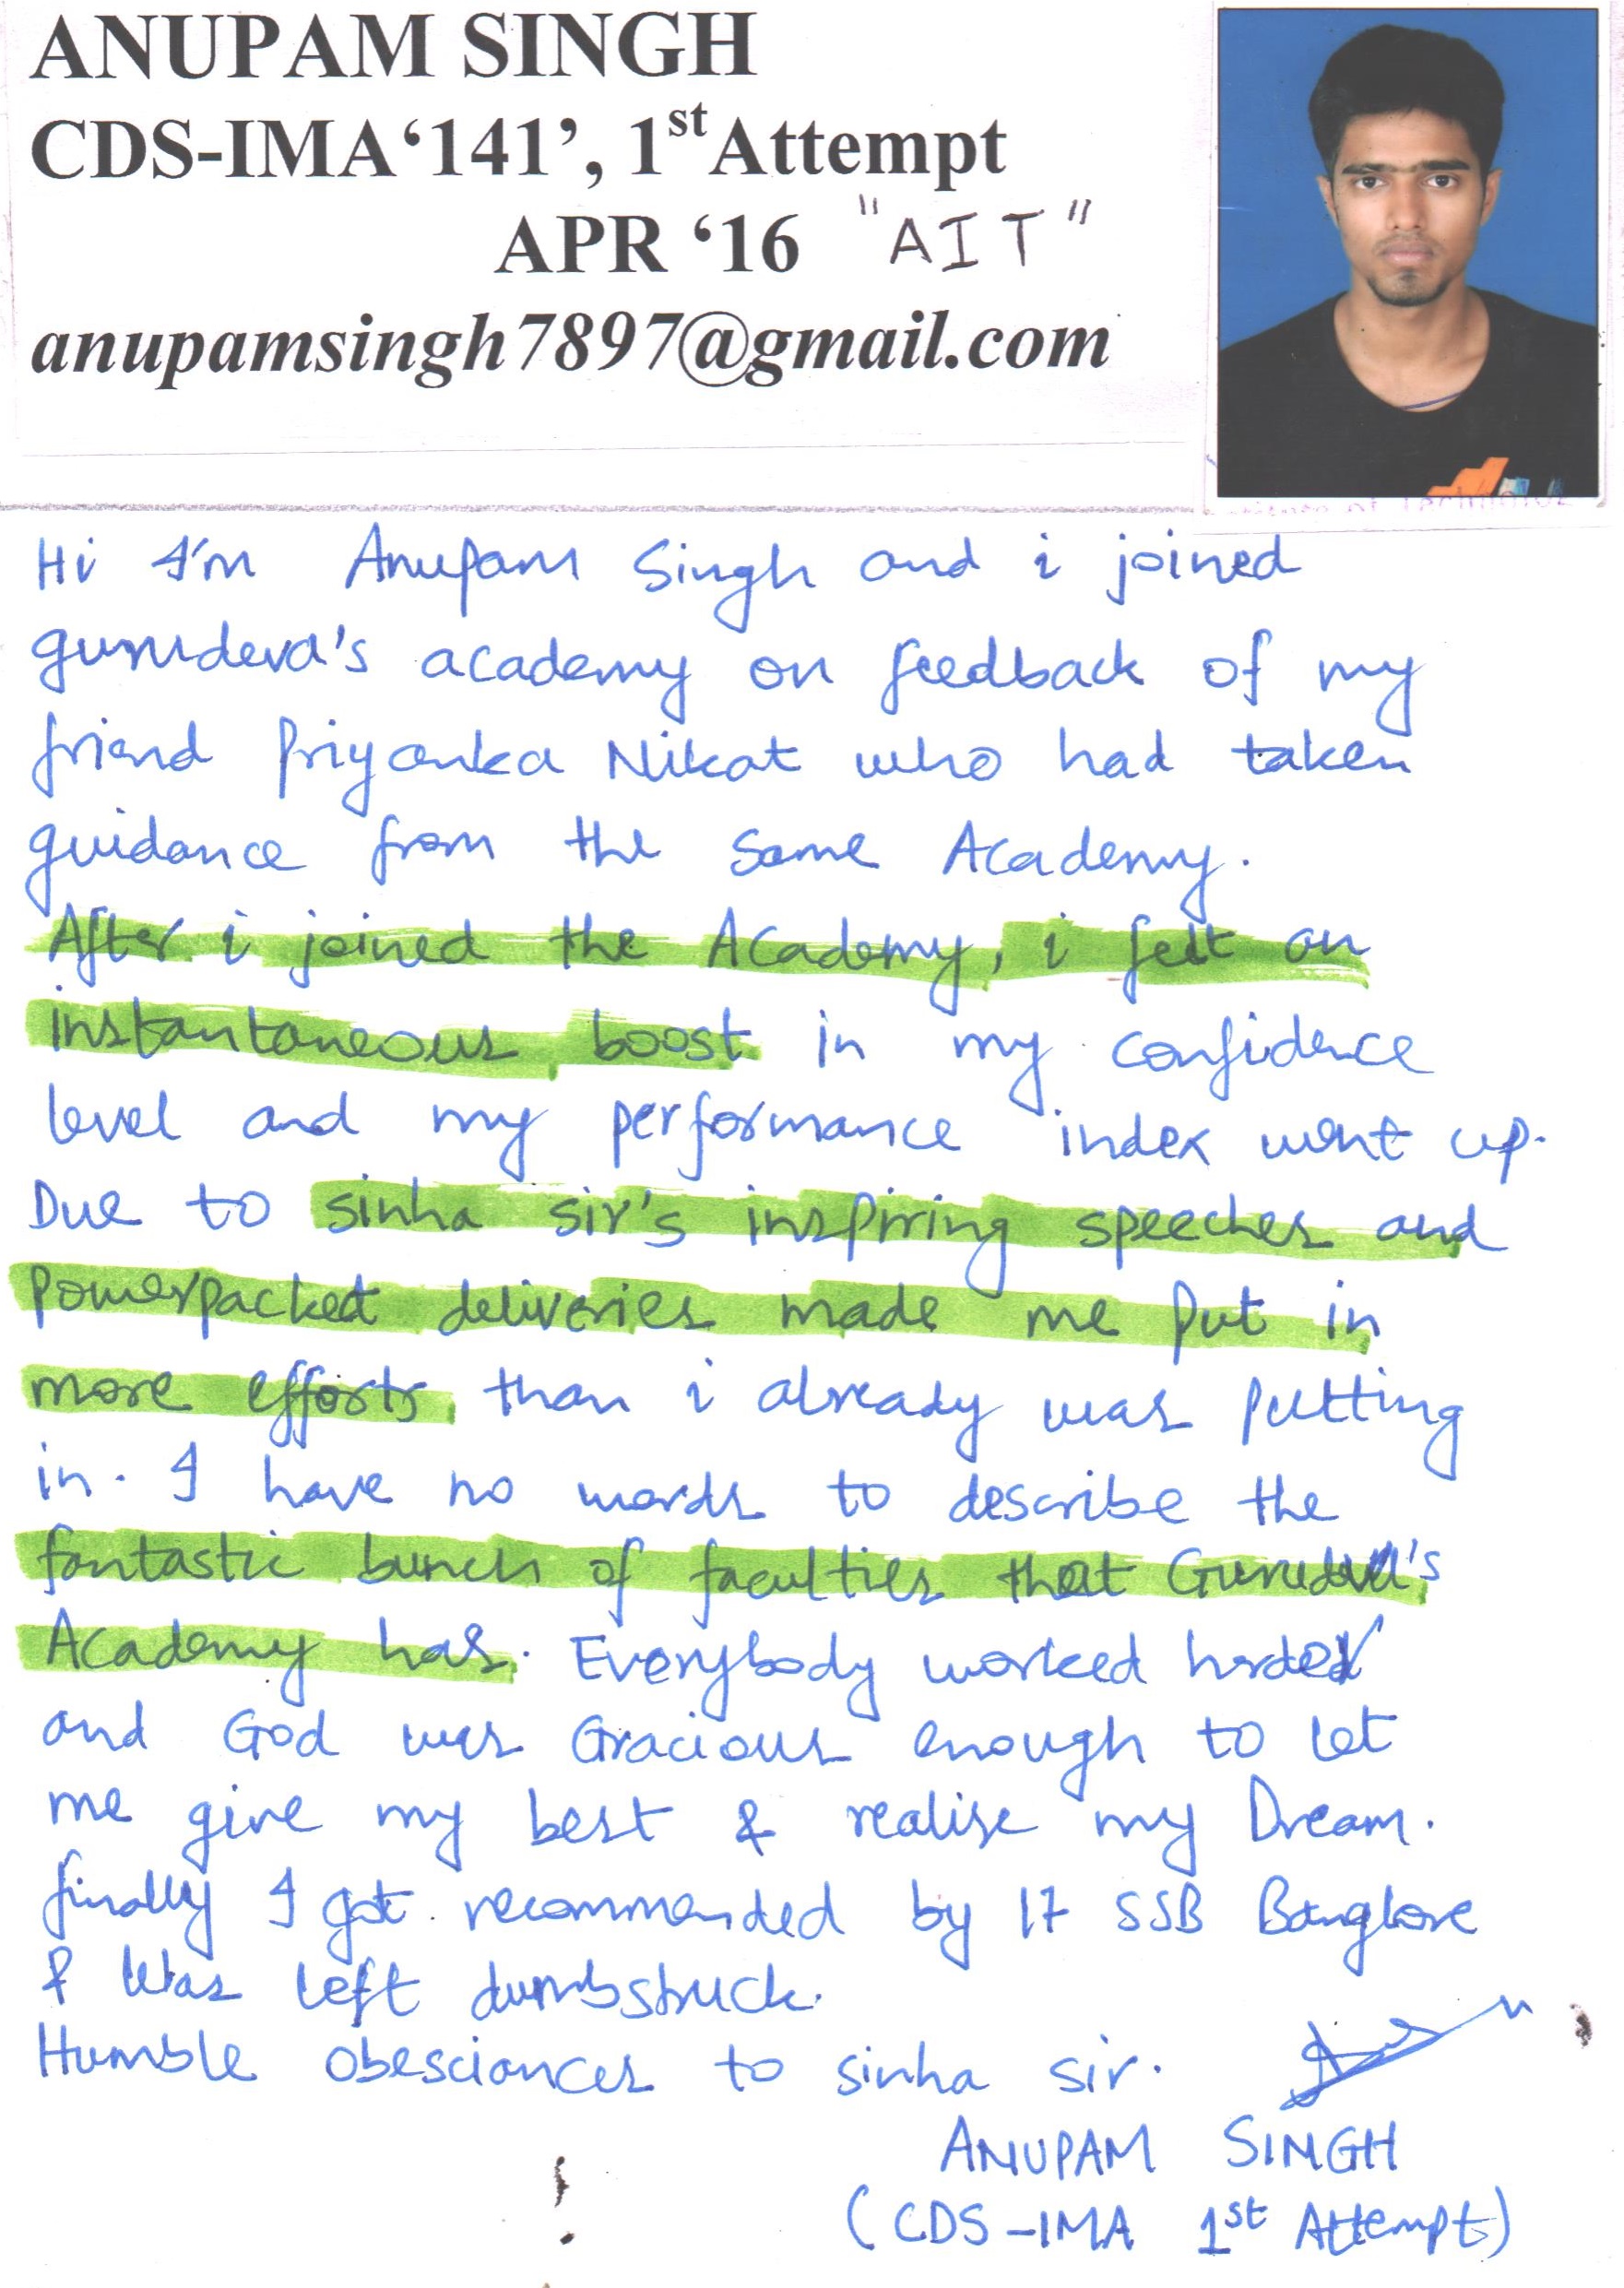 ANUPAM SINGH
CDS-IMA‘141’, 1st Attempt
APR ‘16 "AIT"
anupamsingh7897@gmail.com
Hi I'm Anupam Singh and i joined
gurudeva's academy on feedback of my
friend Priyanka Nikat who had taken
guidance from the same Academy.
After i joined the Academy, i felt an
instantaneous boost in my confidence
level and my performance index went up.
Due to sinha sir's inspiring speeches and
powerpacked deliveries made me put in
more efforts than i already was putting
in. I have no words to describe the
fantastic bunch of faculties that Gurudeva's
Academy has. Everybody worked harder
and God was Gracious enough to let
me give my best & realise my Dream.
finally I got recommended by 17 SSB Banglore
& was left dumbstruck.
Humble obesciances to sinha sir.
ANUPAM SINGH
(CDS-IMA 1st Attempt)